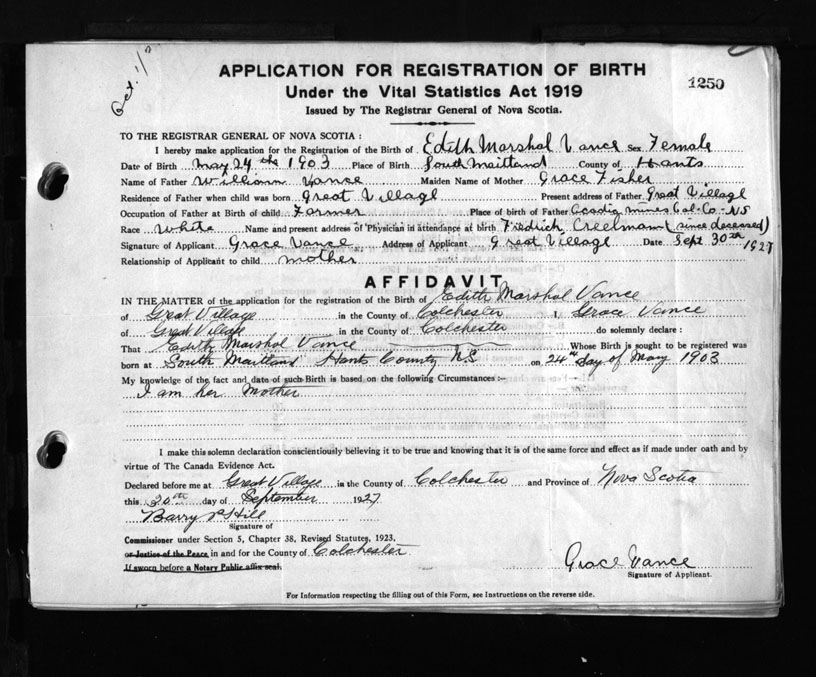 Oct. 1/
APPLICATION FOR REGISTRATION OF BIRTH
1250
Under the Vital Statistics Act 1919
Issued by The Registrar General of Nova Scotia.
TO THE REGISTRAR GENERAL OF NOVA SCOTIA:
I hereby make application for the Registration of the Birth of Edith Marshal Vance Sex Female
Date of Birth May 24 the 1903 Place of Birth South Maitland County of Hants
Name of Father William Vance Maiden Name of Mother Grace Fisher
Residence of Father when child was born Great Village Present address of Father Great Village
Occupation of Father at Birth of child Farmer Place of birth of Father Acadia mines Col-Co-NS
Race White Name and present address of Physician in attendance at birth Fredrich Creelmann (since deceased)
Signature of Applicant Grace Vance Address of Applicant Great Village Date Sept 30th 1927
Relationship of Applicant to child mother
AFFIDAVIT
IN THE MATTER of the application for the registration of the Birth of Edith Marshal Vance
of Great Village in the County of Colchester I, Grace Vance
of Great Village in the County of Colchester do solemnly declare:
That Edith Marshal Vance Whose Birth is sought to be registered was
born at South Maitland Hants County NS on 24th day of May 1903
My knowledge of the fact and date of such Birth is based on the following Circumstances:-
I am her Mother
I make this solemn declaration conscientiously believing it to be true and knowing that it is of the same force and effect as if made under oath and by
virtue of The Canada Evidence Act.
Declared before me at Great Village in the County of Colchester and Province of Nova Scotia
this 30th day of September 1927
Barry Hill
Signature of
Commissioner under Section 5, Chapter 38, Revised Statutes, 1923,
or Justice of the Peace in and for the County of Colchester
If sworn before a Notary Public affix seal.
Grace Vance
Signature of Applicant.
For Information respecting the filling out of this Form, see Instructions on the reverse side.